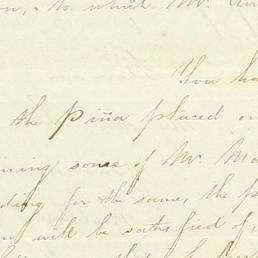 on, - to which Mr.
You ha
the Piña placed on
ning some of Mr. Ma
ding for the same, the p
will be satisfied of,